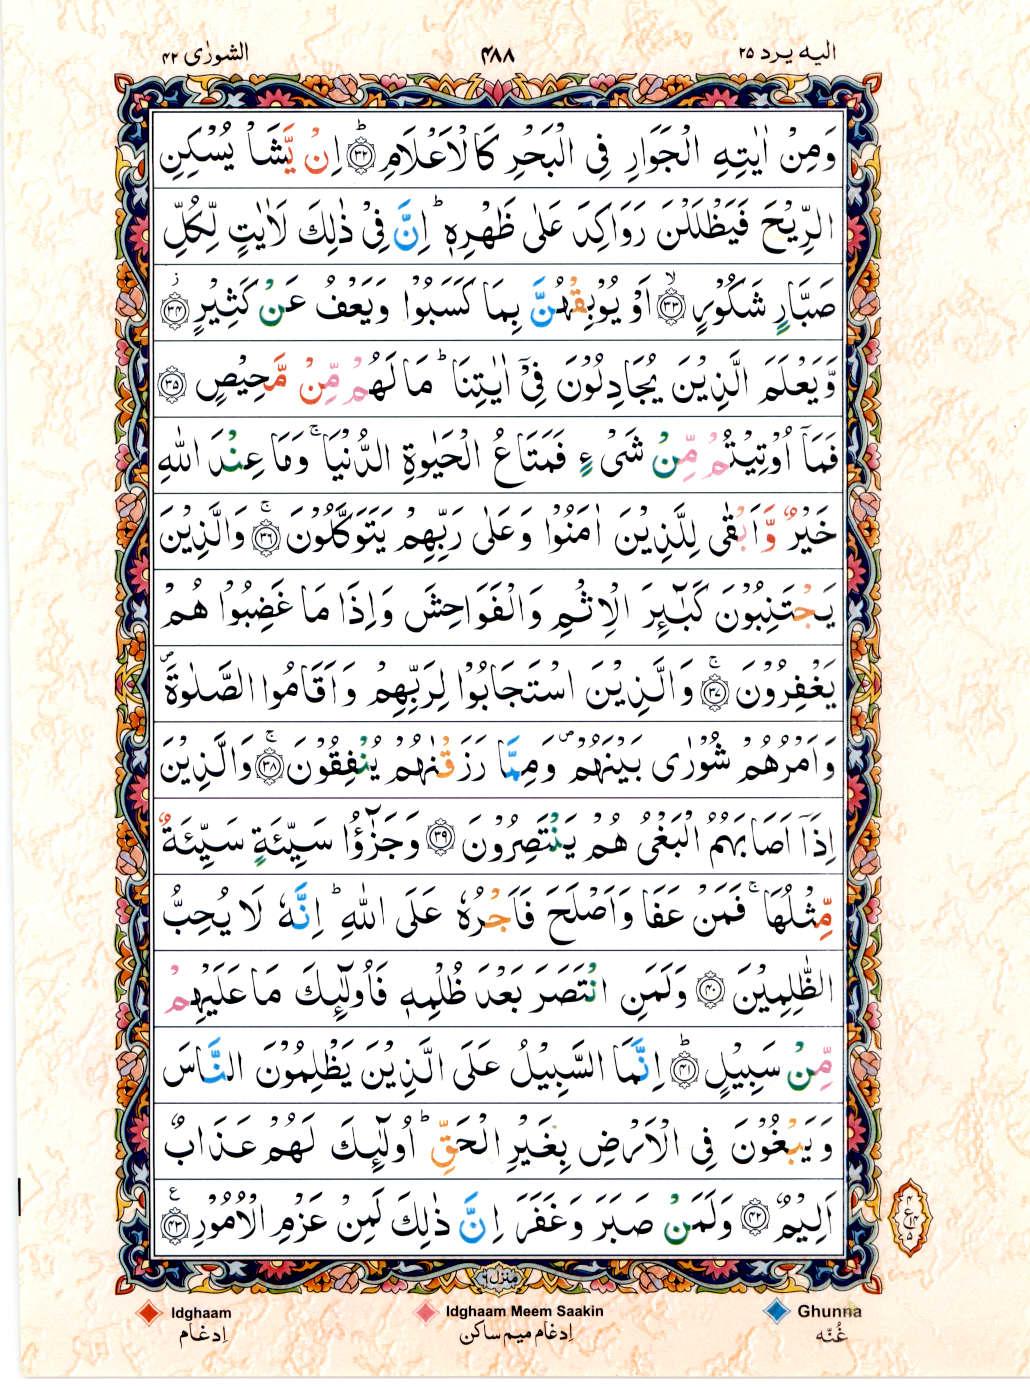 اليه يرد ٢٥
٤٨٨
الشورٰى ٤٢
وَمِنْ اٰيٰتِهِ الْجَوَارِ فِى الْبَحْرِ كَالْاَعْلَامِ ؕ﴿۳۲﴾ اِنْ يَّشَاْ يُسْكِنِ
الرِّيْحَ فَيَظْلَلْنَ رَوَاكِدَ عَلٰى ظَهْرِهٖ ؕ اِنَّ فِىْ ذٰلِكَ لَاٰيٰتٍ لِّكُلِّ
صَبَّارٍ شَكُوْرٍ ۙ﴿۳۳﴾ اَوْ يُوْبِقْهُنَّ بِمَا كَسَبُوْا وَيَعْفُ عَنْ كَثِيْرٍ ۫﴿۳۴﴾
وَّيَعْلَمَ الَّذِيْنَ يُجَادِلُوْنَ فِىْۤ اٰيٰتِنَا ؕ مَا لَهُمْ مِّنْ مَّحِيْصٍ ﴿۳۵﴾
فَمَاۤ اُوْتِيْتُمْ مِّنْ شَىْءٍ فَمَتَاعُ الْحَيٰوةِ الدُّنْيَا ۚ وَمَا عِنْدَ اللّٰهِ
خَيْرٌ وَّاَبْقٰى لِلَّذِيْنَ اٰمَنُوْا وَعَلٰى رَبِّهِمْ يَتَوَكَّلُوْنَ ۚ﴿۳۶﴾ وَالَّذِيْنَ
يَجْتَنِبُوْنَ كَبٰٓئِرَ الْاِثْمِ وَالْفَوَاحِشَ وَاِذَا مَا غَضِبُوْا هُمْ
يَغْفِرُوْنَ ۚ﴿۳۷﴾ وَالَّذِيْنَ اسْتَجَابُوْا لِرَبِّهِمْ وَاَقَامُوا الصَّلٰوةَ ۪
وَاَمْرُهُمْ شُوْرٰى بَيْنَهُمْ ۪ وَمِمَّا رَزَقْنٰهُمْ يُنْفِقُوْنَ ۚ﴿۳۸﴾ وَالَّذِيْنَ
اِذَاۤ اَصَابَهُمُ الْبَغْىُ هُمْ يَنْتَصِرُوْنَ ﴿۳۹﴾ وَجَزٰٓؤُا سَيِّئَةٍ سَيِّئَةٌ
مِّثْلُهَا ۚ فَمَنْ عَفَا وَاَصْلَحَ فَاَجْرُهٗ عَلَى اللّٰهِ ؕ اِنَّهٗ لَا يُحِبُّ
الظّٰلِمِيْنَ ﴿۴۰﴾ وَلَمَنِ انْتَصَرَ بَعْدَ ظُلْمِهٖ فَاُولٰٓئِكَ مَا عَلَيْهِمْ
مِّنْ سَبِيْلٍ ؕ﴿۴۱﴾ اِنَّمَا السَّبِيْلُ عَلَى الَّذِيْنَ يَظْلِمُوْنَ النَّاسَ
وَيَبْغُوْنَ فِى الْاَرْضِ بِغَيْرِ الْحَقِّ ؕ اُولٰٓئِكَ لَهُمْ عَذَابٌ
اَلِيْمٌ ﴿۴۲﴾ وَلَمَنْ صَبَرَ وَغَفَرَ اِنَّ ذٰلِكَ لَمِنْ عَزْمِ الْاُمُوْرِ ۧ﴿۴۳﴾
منزل ٦
Idghaam
Idghaam Meem Saakin
Ghunna
اِدغام
اِدغام میم ساکن
غُنّه